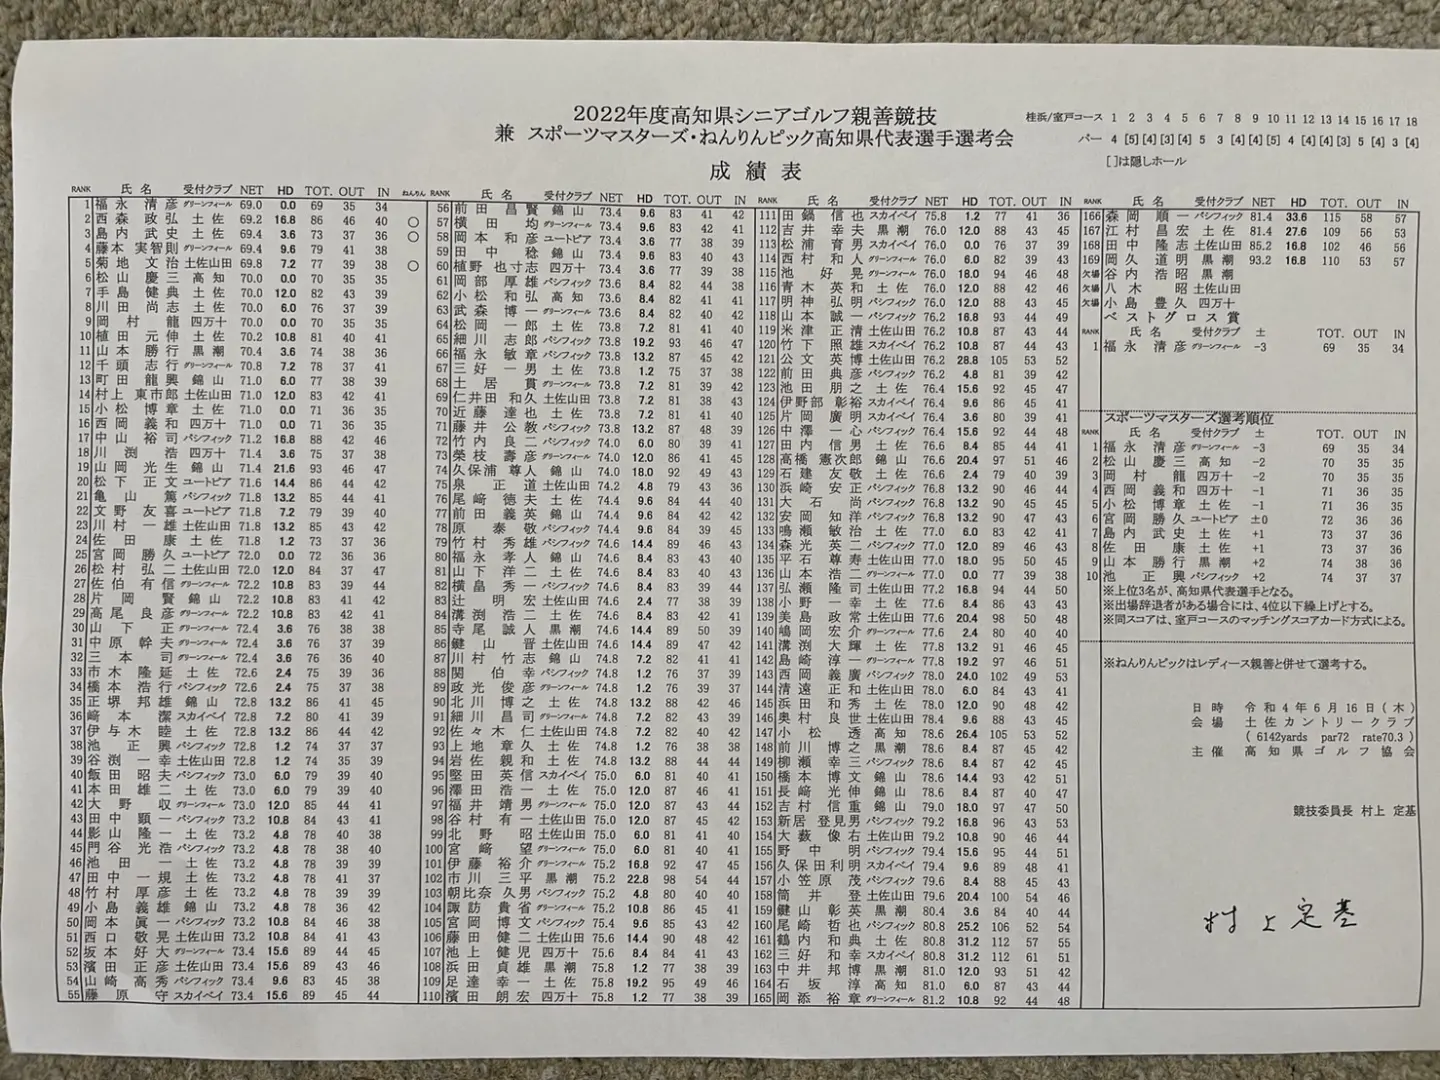 2022年度高知県シニアゴルフ親善競技
兼 スポーツマスターズ・ねんりんピック高知県代表選手選考会
成 績 表
桂浜/室戸コース 1 2 3 4 5 6 7 8 9 10 11 12 13 14 15 16 17 18
パー 4 [5] [4] [3] [4] 5 3 [4] [4] [5] 4 [3] [4] [3] 5 [4] 3 [4]
[ ]は隠しホール
RANK 氏 名 受付クラブ NET HD TOT. OUT IN ねんりん
1 福 永 清 彦 グリーンフィール 69.0 0.0 69 35 34
2 西 森 政 弘 土 佐 69.2 16.8 86 46 40 ○
3 島 内 武 史 土 佐 69.4 3.6 73 37 36 ○
4 藤 本 実智則 グリーンフィール 69.4 9.6 79 41 38
5 菊 地 文 治 土佐山田 69.8 7.2 77 39 38 ○
6 松 山 慶 三 高 知 70.0 0.0 70 35 35
7 手 島 健 典 土 佐 70.0 12.0 82 43 39
8 川 田 尚 志 土 佐 70.0 6.0 76 37 39
9 岡 村 龍 四万十 70.0 0.0 70 35 35
10 植 田 元 伸 土 佐 70.2 10.8 81 40 41
11 山 本 勝 行 黒 潮 70.4 3.6 74 38 36
12 千 頭 志 行 グリーンフィール 70.8 7.2 78 37 41
13 町 田 龍 興 錦 山 71.0 6.0 77 38 39
14 村 上 東市郎 土佐山田 71.0 12.0 83 42 41
15 小 松 博 章 土 佐 71.0 0.0 71 36 35
16 西 岡 義 和 四万十 71.0 0.0 71 36 35
17 中 山 裕 司 パシフィック 71.2 16.8 88 42 46
18 川 渕 浩 四万十 71.4 3.6 75 37 38
19 山 岡 光 生 錦 山 71.4 21.6 93 46 47
20 松 下 正 文 ユートピア 71.6 14.4 86 44 42
21 亀 山 篤 パシフィック 71.8 13.2 85 44 41
22 文 野 友 喜 ユートピア 71.8 7.2 79 40 39
23 川 村 一 雄 土佐山田 71.8 13.2 85 43 42
24 佐 田 康 土 佐 71.8 1.2 73 37 36
25 宮 岡 勝 久 ユートピア 72.0 0.0 72 36 36
26 松 村 弘 二 土佐山田 72.0 12.0 84 37 47
27 佐 伯 有 信 グリーンフィール 72.2 10.8 83 39 44
28 片 岡 賢 錦 山 72.2 10.8 83 41 42
29 高 尾 良 彦 グリーンフィール 72.2 10.8 83 42 41
30 山 下 正 グリーンフィール 72.4 3.6 76 38 38
31 中 原 幹 夫 グリーンフィール 72.4 3.6 76 37 39
32 三 本 司 グリーンフィール 72.4 3.6 76 36 40
33 市 木 隆 延 土 佐 72.6 2.4 75 39 36
34 橋 本 浩 行 パシフィック 72.6 2.4 75 37 38
35 正 堺 邦 雄 錦 山 72.8 13.2 86 41 45
36 﨑 本 潔 スカイベイ 72.8 7.2 80 41 39
37 伊与木 睦 土 佐 72.8 13.2 86 44 42
38 池 正 興 パシフィック 72.8 1.2 74 37 37
39 谷 渕 一 幸 土佐山田 72.8 1.2 74 35 39
40 飯 田 昭 夫 パシフィック 73.0 6.0 79 39 40
41 本 田 雄 二 土 佐 73.0 6.0 79 39 40
42 大 野 収 グリーンフィール 73.0 12.0 85 44 41
43 田 中 顕 一 パシフィック 73.2 10.8 84 43 41
44 影 山 隆 一 土 佐 73.2 4.8 78 40 38
45 門 谷 光 浩 パシフィック 73.2 4.8 78 38 40
46 池 田 一 土 佐 73.2 4.8 78 39 39
47 田 中 一 規 土 佐 73.2 4.8 78 41 37
48 竹 村 厚 彦 土 佐 73.2 4.8 78 39 39
49 小 島 義 雄 錦 山 73.2 4.8 78 36 42
50 岡 本 眞 一 パシフィック 73.2 10.8 84 46 38
51 西 口 敬 晃 土佐山田 73.2 10.8 84 41 43
52 坂 本 好 大 グリーンフィール 73.4 15.6 89 44 45
53 濱 田 正 彦 土佐山田 73.4 15.6 89 43 46
54 山 崎 高 秀 パシフィック 73.4 9.6 83 45 38
55 藤 原 守 スカイベイ 73.4 15.6 89 45 44
RANK 氏 名 受付クラブ NET HD TOT. OUT IN
56 前 田 昌 賢 錦 山 73.4 9.6 83 41 42
57 横 田 均 グリーンフィール 73.4 9.6 83 42 41
58 岡 本 和 彦 ユートピア 73.4 3.6 77 38 39
59 田 中 稔 錦 山 73.4 9.6 83 44 39
60 植 野 也寸志 四万十 73.4 3.6 77 39 38
61 岡 部 厚 雄 パシフィック 73.6 8.4 82 44 38
62 小 松 和 弘 高 知 73.6 8.4 82 41 41
63 武 森 博 一 グリーンフィール 73.6 8.4 82 40 42
64 松 岡 一 郎 土 佐 73.8 7.2 81 41 40
65 細 川 志 郎 パシフィック 73.8 19.2 93 46 47
66 森 沢 敏 章 パシフィック 73.8 13.2 87 45 42
67 三 好 一 男 土 佐 73.8 1.2 75 37 38
68 土 居 貫 グリーンフィール 73.8 7.2 81 39 42
69 仁井田 和 久 土佐山田 73.8 7.2 81 38 43
70 近 藤 達 也 土 佐 73.8 7.2 81 41 40
71 藤 井 公 教 パシフィック 73.8 13.2 87 48 39
72 竹 内 良 二 パシフィック 74.0 6.0 80 39 41
73 榮 枝 壽 彦 グリーンフィール 74.0 12.0 86 41 45
74 久保浦 尊 人 錦 山 74.0 18.0 92 49 43
75 泉 正 道 土佐山田 74.2 4.8 79 43 36
76 尾 﨑 徳 夫 土 佐 74.4 9.6 84 44 40
77 前 田 義 英 錦 山 74.4 9.6 84 42 42
78 原 泰 敬 パシフィック 74.4 9.6 84 39 45
79 竹 村 秀 雄 パシフィック 74.6 14.4 89 46 43
80 福 永 孝 人 錦 山 74.6 8.4 83 43 40
81 山 下 洋 二 土 佐 74.6 8.4 83 40 43
82 横 畠 秀 一 パシフィック 74.6 13.2 83 40 43
83 辻 明 宏 土佐山田 74.6 2.4 77 38 39
84 溝 渕 浩 二 土 佐 74.6 8.4 83 42 41
85 寺 尾 誠 人 黒 潮 74.6 14.4 89 50 39
86 鍵 山 晋 土佐山田 74.6 14.4 89 47 42
87 川 村 竹 志 錦 山 74.8 7.2 82 41 41
88 関 伯 幸 パシフィック 74.8 1.2 76 37 39
89 政 光 俊 彦 グリーンフィール 74.8 1.2 76 39 37
90 北 川 博 之 土 佐 74.8 13.2 88 42 46
91 細 川 昌 司 グリーンフィール 74.8 7.2 82 43 39
92 佐々木 仁 土佐山田 74.8 7.2 82 36 46
93 上 地 章 久 土 佐 74.8 1.2 76 38 38
94 岩 佐 親 和 土 佐 74.8 13.2 88 44 44
95 堅 田 英 信 スカイベイ 75.0 6.0 81 40 41
96 澤 田 浩 一 土 佐 75.0 12.0 87 46 41
97 福 井 靖 男 グリーンフィール 75.0 12.0 87 43 44
98 谷 村 有 一 土佐山田 75.0 12.0 87 45 42
99 北 野 昭 土佐山田 75.0 6.0 81 41 40
100 宮 﨑 望 グリーンフィール 75.0 6.0 81 40 41
101 伊 藤 裕 介 グリーンフィール 75.2 16.8 92 47 45
102 市 川 三 平 黒 潮 75.2 22.8 98 54 44
103 朝比奈 久 男 パシフィック 75.2 4.8 80 40 40
104 諏 訪 貴 省 グリーンフィール 75.2 10.8 86 45 41
105 宮 岡 博 文 パシフィック 75.4 9.6 85 43 42
106 藤 田 健 二 土佐山田 75.6 14.4 90 48 42
107 池 上 健 児 四万十 75.6 8.4 84 41 43
108 浜 田 貞 雄 黒 潮 75.8 1.2 77 38 39
109 足 達 幸 一 土 佐 75.8 19.2 95 49 46
110 濱 田 朗 宏 四万十 75.8 1.2 77 38 39
RANK 氏 名 受付クラブ NET HD TOT. OUT IN
111 田 鍋 信 也 スカイベイ 75.8 1.2 77 41 36
112 吉 井 幸 夫 黒 潮 76.0 12.0 88 43 45
113 松 浦 育 男 スカイベイ 76.0 0.0 76 37 39
114 西 村 和 人 グリーンフィール 76.0 6.0 82 39 43
115 池 好 晃 グリーンフィール 76.0 18.0 94 46 48
116 青 木 英 和 土 佐 76.0 12.0 88 42 46
117 明 神 弘 明 パシフィック 76.0 12.0 88 43 45
118 山 本 誠 一 パシフィック 76.2 16.8 93 44 49
119 米 津 正 清 土佐山田 76.2 10.8 87 43 44
120 竹 下 照 雄 スカイベイ 76.2 10.8 87 44 43
121 公 文 英 博 土佐山田 76.2 28.8 105 53 52
122 前 田 典 彦 パシフィック 76.2 4.8 81 39 42
123 池 田 朋 之 土 佐 76.4 15.6 92 45 47
124 伊野部 彰 裕 スカイベイ 76.4 9.6 86 45 41
125 片 岡 廣 明 スカイベイ 76.4 3.6 80 39 41
126 中 澤 一 心 パシフィック 76.4 15.6 92 44 48
127 田 内 信 男 土 佐 76.6 8.4 85 44 41
128 高 橋 憲次郎 錦 山 76.6 20.4 97 51 46
129 石 建 友 敬 土 佐 76.6 2.4 79 40 39
130 浜 崎 安 正 パシフィック 76.8 13.2 90 46 44
131 大 石 尚 パシフィック 76.8 13.2 90 45 45
132 安 岡 知 洋 パシフィック 76.8 13.2 90 47 43
133 鳴 瀬 敏 治 土 佐 77.0 6.0 83 42 41
134 森 光 英 二 パシフィック 77.0 12.0 89 46 43
135 平 石 尊 寿 土佐山田 77.0 18.0 95 50 45
136 山 本 浩 二 グリーンフィール 77.0 0.0 77 39 38
137 弘 瀬 隆 司 土佐山田 77.2 16.8 94 44 50
138 小 野 一 幸 土 佐 77.6 8.4 86 43 43
139 美 島 政 常 土佐山田 77.6 20.4 98 50 48
140 嶋 岡 宏 介 グリーンフィール 77.6 2.4 80 40 40
141 溝 渕 大 輝 土 佐 77.8 13.2 91 46 45
142 島 崎 淳 一 グリーンフィール 77.8 19.2 97 46 51
143 西 岡 義 廣 パシフィック 78.0 24.0 102 49 53
144 清 遠 正 和 土佐山田 78.0 6.0 84 43 41
145 浜 田 和 秀 土 佐 78.0 12.0 90 48 42
146 奥 村 良 世 土佐山田 78.4 9.6 88 43 45
147 小 松 透 高 知 78.6 26.4 105 53 52
148 前 川 博 之 黒 潮 78.6 8.4 87 45 42
149 柳 瀬 幸 三 パシフィック 78.6 8.4 87 42 45
150 橋 本 博 文 錦 山 78.6 14.4 93 42 51
151 長 﨑 光 伸 錦 山 78.6 8.4 87 40 47
152 吉 村 信 重 錦 山 79.0 18.0 97 47 50
153 新 居 登見男 パシフィック 79.2 16.8 96 43 53
154 大 薮 像 右 土佐山田 79.2 10.8 90 46 44
155 野 中 明 パシフィック 79.4 15.6 95 44 51
156 久保田 利 明 スカイベイ 79.4 9.6 89 48 41
157 小笠原 茂 パシフィック 79.6 8.4 88 45 43
158 筒 井 登 土佐山田 79.6 20.4 100 54 46
159 鍵 山 彰 英 黒 潮 80.4 3.6 84 40 44
160 尾 崎 哲 也 パシフィック 80.8 25.2 106 52 54
161 鶴 内 和 典 土 佐 80.8 31.2 112 57 55
162 三 好 和 幸 スカイベイ 80.8 31.2 112 61 51
163 中 井 邦 博 黒 潮 81.0 12.0 93 51 42
164 石 坂 淳 高 知 81.0 6.0 87 43 44
165 岡 添 裕 章 グリーンフィール 81.2 10.8 92 44 48
RANK 氏 名 受付クラブ NET HD TOT. OUT IN
166 森 岡 順 一 パシフィック 81.4 33.6 115 58 57
167 江 村 昌 宏 土 佐 81.4 27.6 109 56 53
168 田 中 隆 志 土佐山田 85.2 16.8 102 46 56
169 岡 久 道 明 黒 潮 93.2 16.8 110 53 57
欠場 谷 内 浩 昭 黒 潮
欠場 八 木 昭 土佐山田
欠場 小 島 豊 久 四万十
ベ ス ト グ ロ ス 賞
RANK 氏 名 受付クラブ ± TOT. OUT IN
1 福 永 清 彦 グリーンフィール −3 69 35 34
スポーツマスターズ選考順位
RANK 氏 名 受付クラブ ± TOT. OUT IN
1 福 永 清 彦 グリーンフィール −3 69 35 34
2 松 山 慶 三 高 知 −2 70 35 35
3 岡 村 龍 四万十 −2 70 35 35
4 西 岡 義 和 四万十 −1 71 36 35
5 小 松 博 章 土 佐 −1 71 36 35
6 宮 岡 勝 久 ユートピア ±0 72 36 36
7 島 内 武 史 土 佐 +1 73 37 36
8 佐 田 康 土 佐 +1 73 37 36
9 山 本 勝 行 黒 潮 +2 74 38 36
10 池 正 興 パシフィック +2 74 37 37
※上位3名が、高知県代表選手となる。
※出場辞退者がある場合には、4位以下繰上げとする。
※同スコアは、室戸コースのマッチングスコアカード方式による。
※ねんりんピックはレディース親善と併せて選考する。
日 時 令 和 4 年 6 月 16 日 ( 木 )
会 場 土 佐 カ ン ト リ ー ク ラ ブ
( 6142yards par72 rate70.3 )
主 催 高 知 県 ゴ ル フ 協 会
競技委員長 村上 定基
村上定基